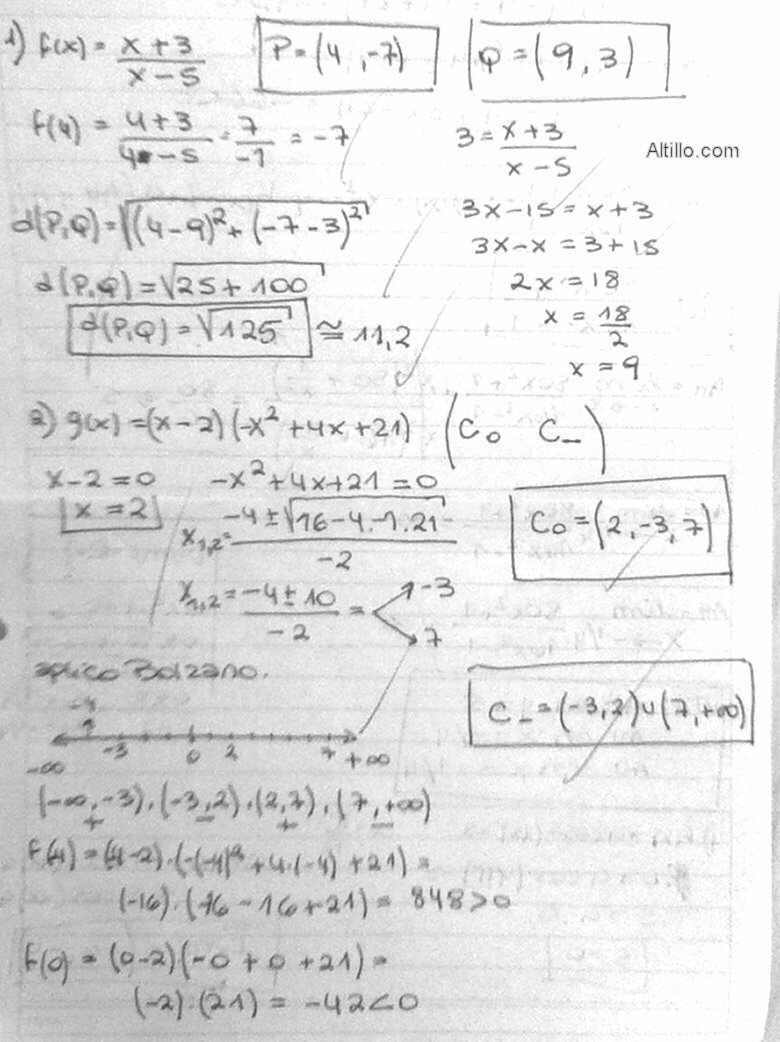 1) f(x) = x+3 / x-5   P = (4, -7)   Q = (9, 3)
f(4) = 4+3 / 4-5 = 7 / -1 = -7
3 = x+3 / x-5
Altillo.com
3x-15 = x+3
3x-x = 3+15
2x = 18
x = 18 / 2
x = 9
d(P,Q) = √((4-9)² + (-7-3)²)
d(P,Q) = √25 + 100
d(P,Q) = √125 ≅ 11,2
2) g(x) = (x-2) (-x² + 4x + 21)   (C₀  C₋)
x-2 = 0   -x² + 4x + 21 = 0
x = 2
x₁,₂ = -4 ± √16-4.-1.21 / -2
C₀ = (2, -3, 7)
x₁,₂ = -4 ± 10 / -2 = -3
7
aplico Bolzano.
C₋ = (-3, 2) ∪ (7, +∞)
-4
-∞ -3 0 2 7 +∞
(-∞, -3), (-3, 2), (2, 7), (7, +∞)
+ - + -
f(-4) = (4-2).(-(-4)² + 4.(-4) + 21) =
(-16).(-16 - 16 + 21) = 848 > 0
f(0) = (0-2)(-0 + 0 + 21) =
(-2).(21) = -42 < 0